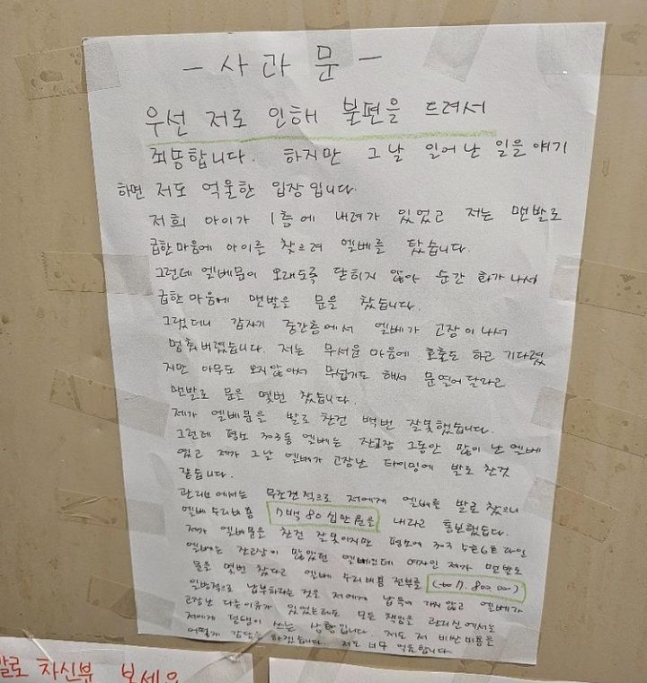 - 사 과 문 -
우선 저로 인해 불편을 드려서
죄송합니다. 하지만 그날 일어난 일을 얘기
하면 저도 억울한 입장입니다.
저희 아이가 1층에 내려가 있었고 저는 맨발로
급한마음에 아이를 찾으려 엘베를 탔습니다.
그런데 엘베문이 오래도록 닫히지 않아 순간 화가나서
급한 마음에 맨발을 문을 찼습니다.
그랬더니 갑자기 중간층에서 엘베가 고장이 나서
멈춰버렸습니다. 저는 무서운 마음에 호출도 하고 기다렸
지만 아무도 오지않아서 무섭기도 해서 문열어달라고
맨발로 문을 몇번 찼습니다.
제가 엘베문을 발로 찬건 백번 잘못했습니다.
그런데 평소 303동 엘베는 잔고장 그동안 많이 난 엘베
였고 제가 그날 엘베가 고장난 타이밍에 발로 찬것
같습니다.
관리소에서는 무조건적으로 저에게 엘베를 발로 찼으니
엘베 수리비용 7백80십만원을 내라고 통보했습니다.
제가 엘베문을 찬건 잘못이지만 평소에 303동 라인
엘베는 잔고장이 많았던 엘베인데 여자인 제가 맨발로
문을 몇번 찼다고 엘베 수리비용 전부를 (₩7.800.000)
일방적으로 납부하라는 것은 저에게 납득이 가지 않고 엘베가
고장난 다른이유가 있었는데도 모든 책임을 관리실에서는
저에게 덤탱이 쓰는 상황입니다. 저도 저 비싼비용을
어떻게 감당을 하겠습니까. 저도 너무 억울합니다.
발로 차신분 보세요